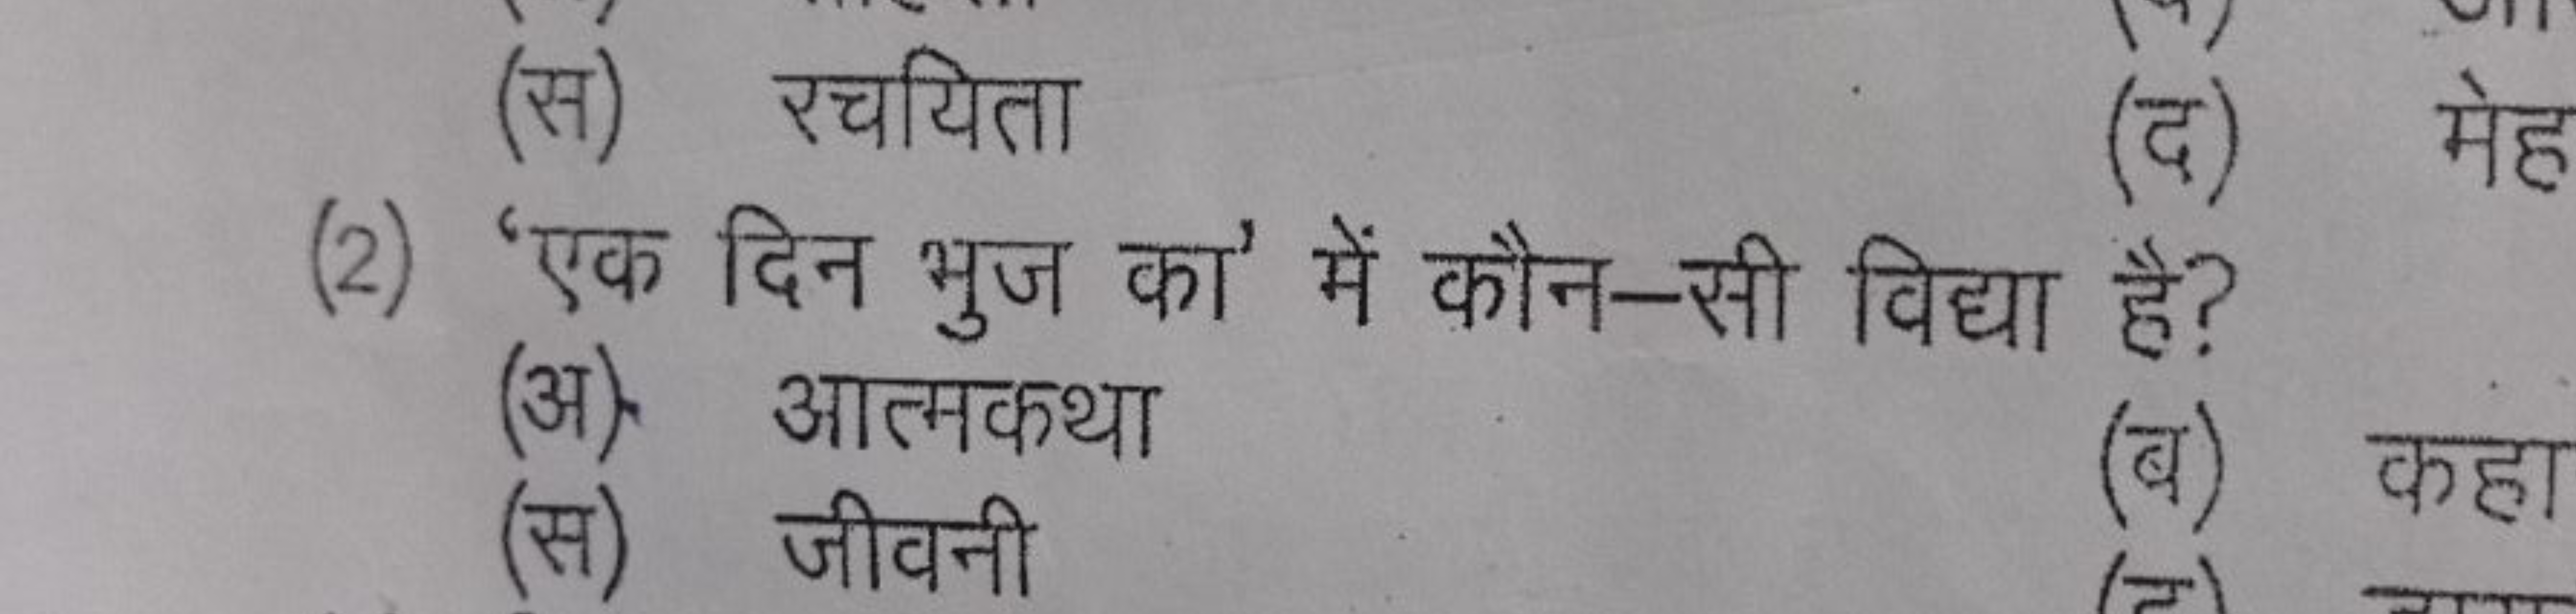 (स) रचयिता (द) मेह
(2) ‘एक दिन भुज का’ में कौन–सी विद्या है?
(अ) आत्मकथा (ब) कहा
(स) जीवनी